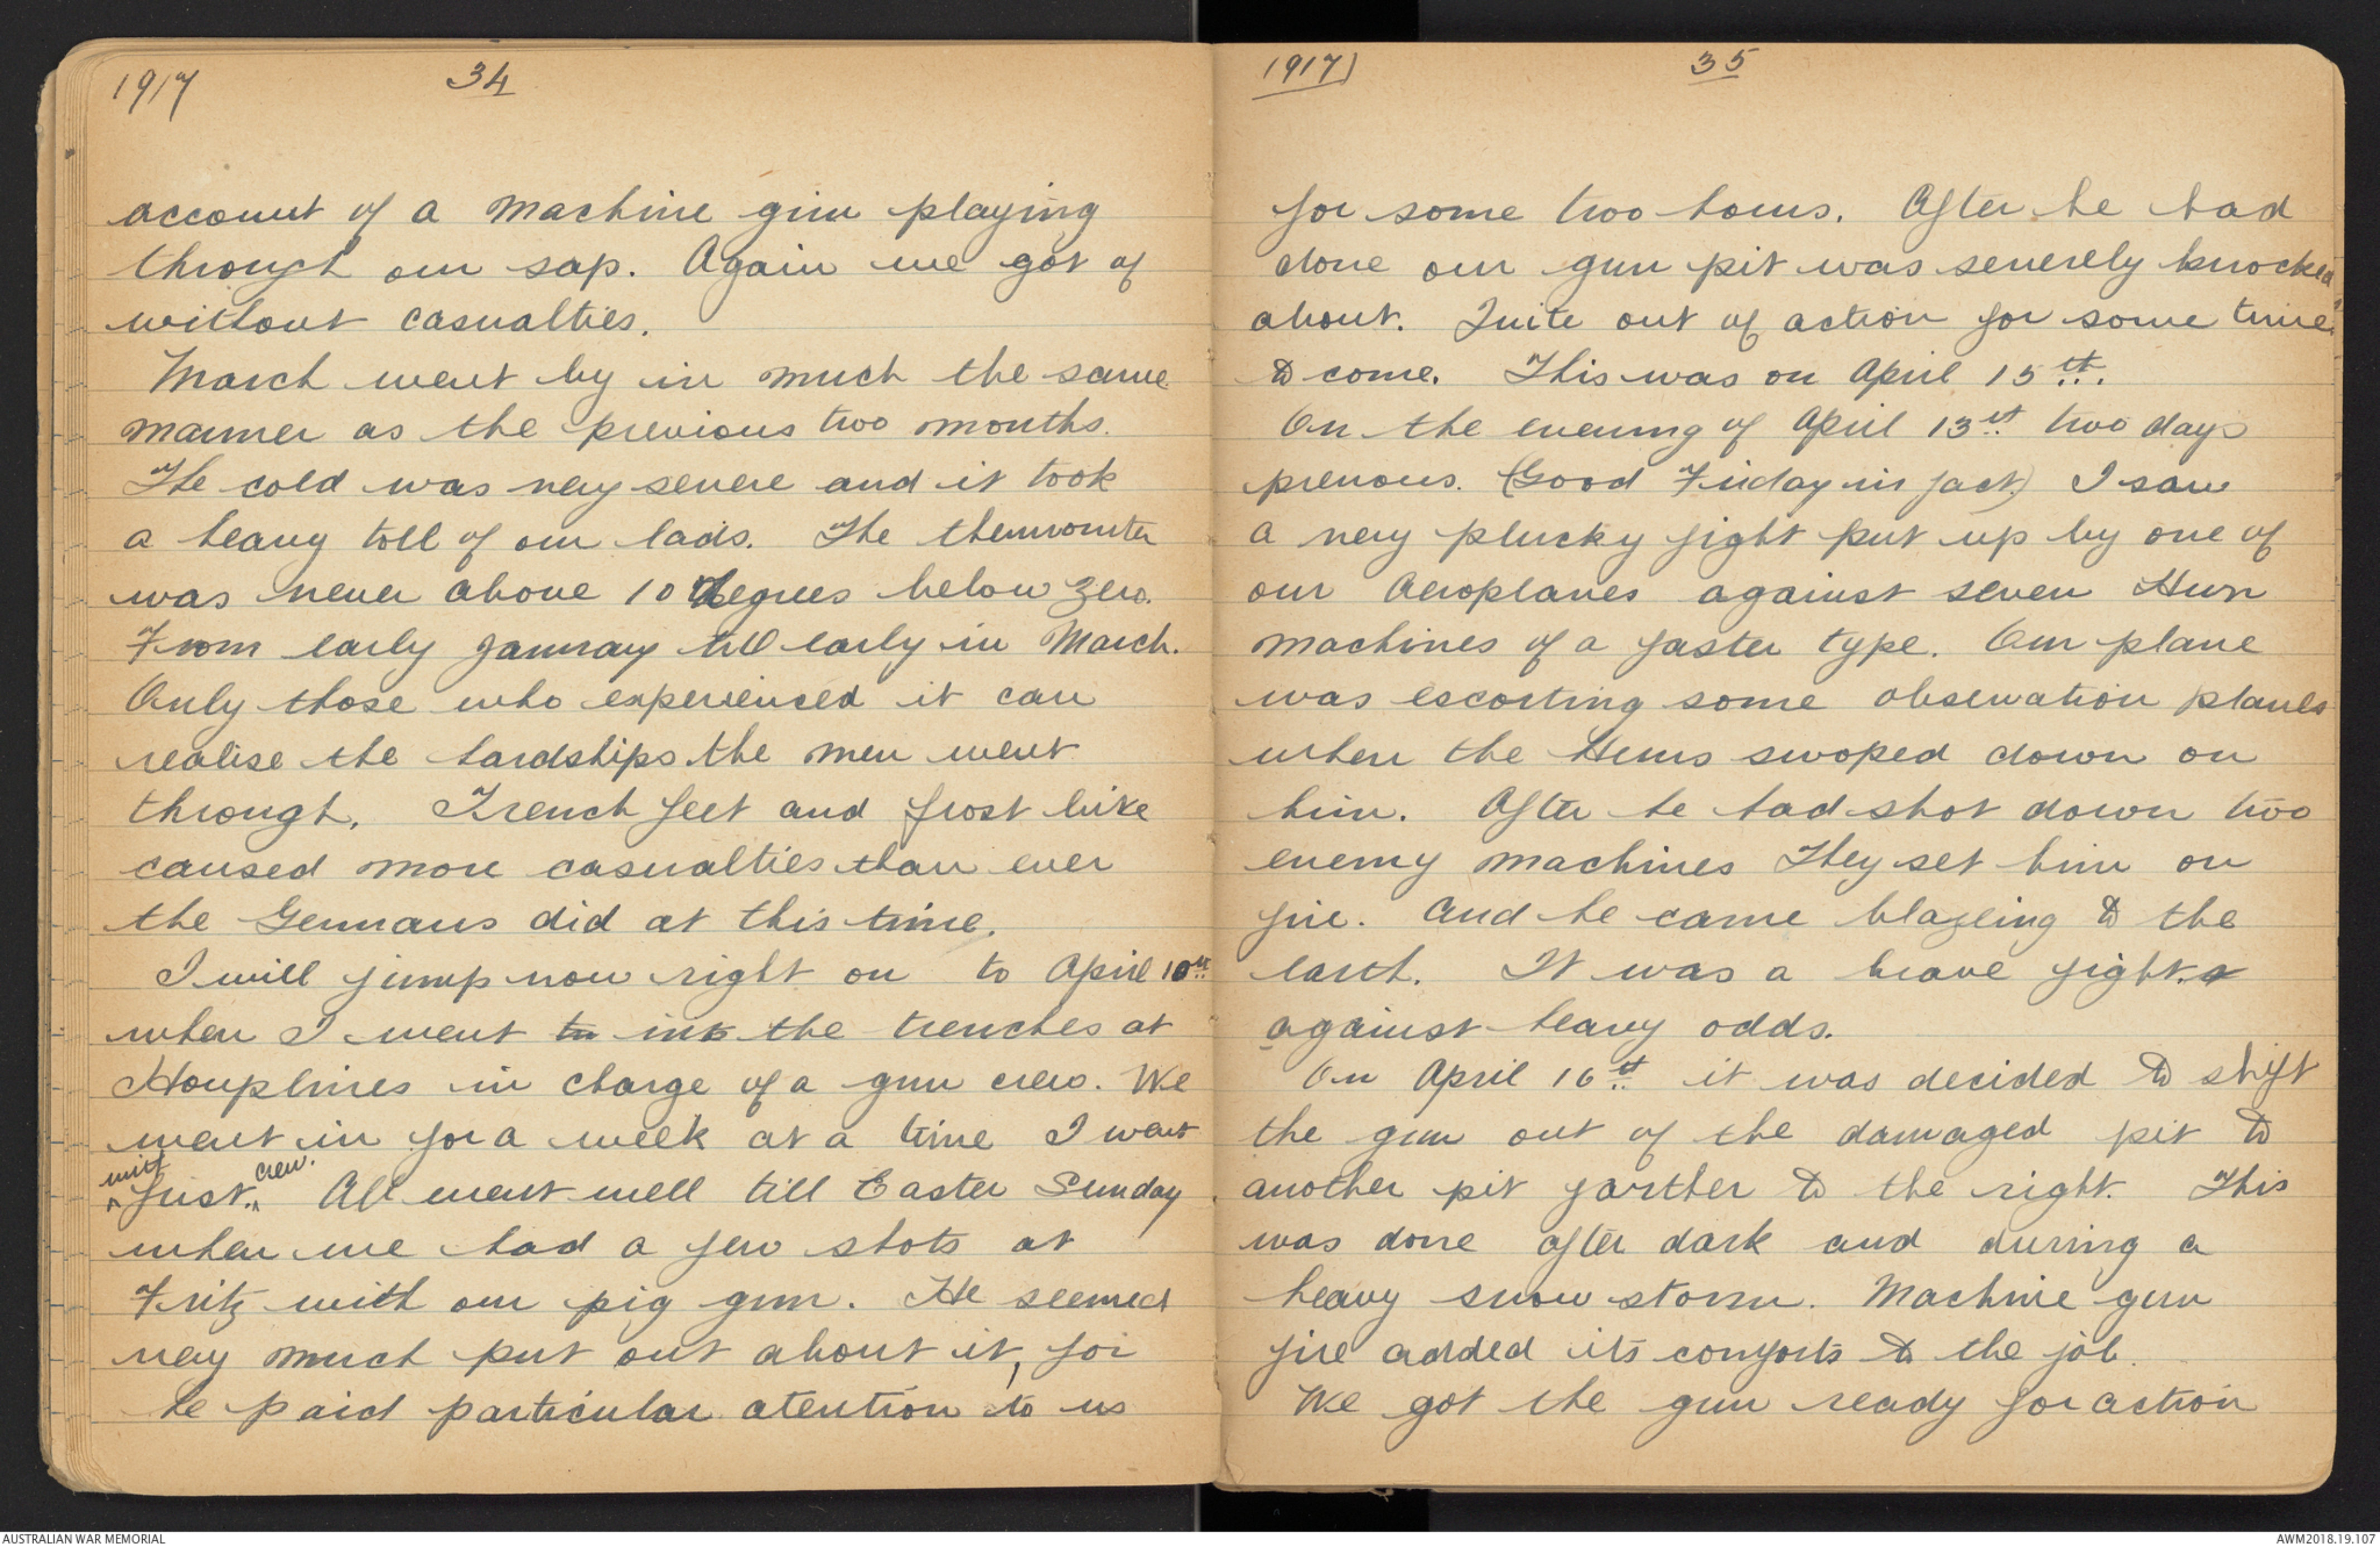 1917 34
account of a machine gun playing
through our sap. Again we got of
without casualties.
March went by in much the same
manner as the previous two months.
The cold was very severe and it took
a heavy toll of our lads. The thermomter
was never above 10 degrees below zero.
From early January till early in March.
Only those who experienced it can
realise the hardships the men went
through. Trench feet and frost bite
caused more casualties than ever
the Germans did at this time.
I will jump now right on to April 10th
when I went to into the trenches at
Houplines in charge of a gun crew. We
went in for a week at a time I went
with crew.
first. All went well till Easter Sunday
when we had a few shots at
Fritz with our pig gun. He seemed
very much put out about it, for
he paid particular atention to us
1917) 35
for some two hours. After he had
done our gun pit was severely knocked
about. Quite out of action for some time
to come. This was on April 15th.
On the evening of April 13th two days
previous. (Good Friday in fact) I saw
a very plucky fight put up by one of
our Aeroplanes against seven Hun
machines of a faster type. Our plane
was escorting some observation planes
when the Huns swoped down on
him. After he had shot down two
enemy machines They set him on
fire. And he came blazeing to the
earth. It was a brave fight.
against heavy odds.
On April 16th it was decided to shift
the gun out of the damaged pit to
another pit farther to the right. This
was done after dark and during a
heavy snow storm. Machine gun
fire added its comforts to the job.
We got the gun ready for action
AUSTRALIAN WAR MEMORIAL
AWM2018.19.107